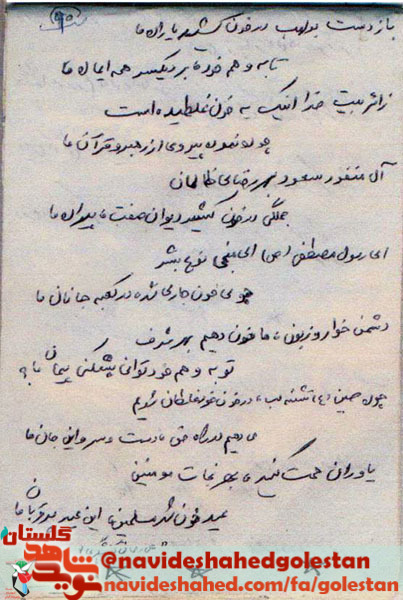 باز دست بولهب در خون کشید یاران ما
تا به وهم خود برد یکسر همه ایمان ما
زائر بیت خدا اینک به خون غلطیده است
چون نموده پیروی از رهبر و قرآن ما
آل منفور سعود بهر رضای ظالمان
جملگی در خون کشید دیوان صفت پیران ما
ای رسول مصطفی (ص) ای منجی نوع بشر
جوی خون جاری شده در کعبه جانان ما
دشمن خوار و زبون، ما خون دهیم بهر شرف
تو به وهم خود توانی بشکنی پیمان ما؟
چون حسین (ع) تشنه لب، در خون خود غلطان شویم
می دهیم در راه حق دست و سر و این جان ما
یاوران همت کنید بهر نجات مومنین
عید خون شد مسلمین، این عید قربان ما
گلستان
نوید شاهد
@navideshahedgolestan
navideshahed.com/fa/golestan